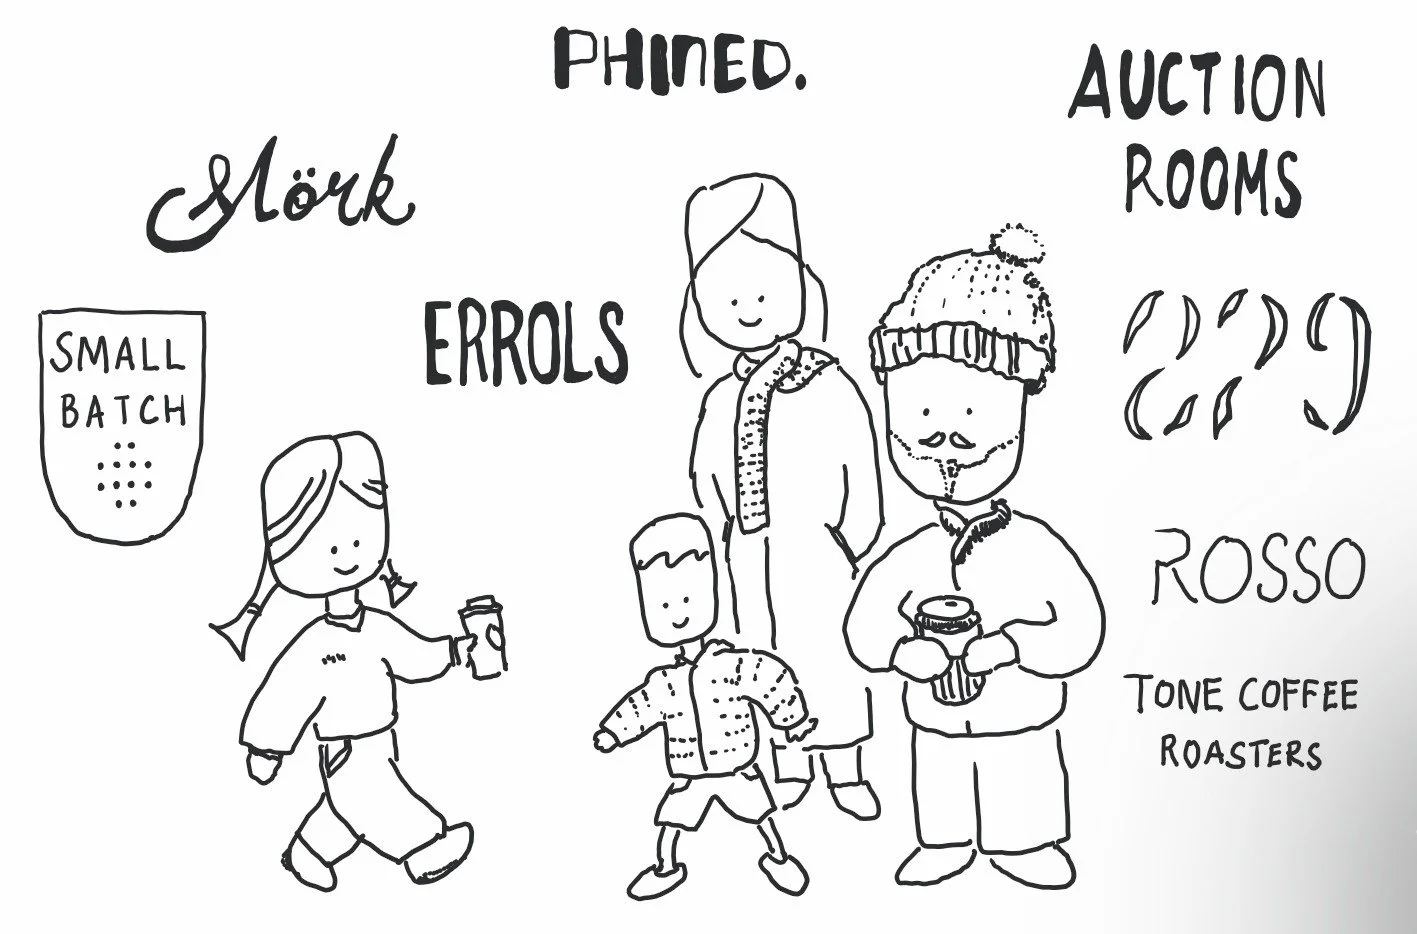 PHINED.
AUCTION
ROOMS
Mörk
SMALL
BATCH
ERRORLS
ROSSO
TONE COFFEE
ROASTERS